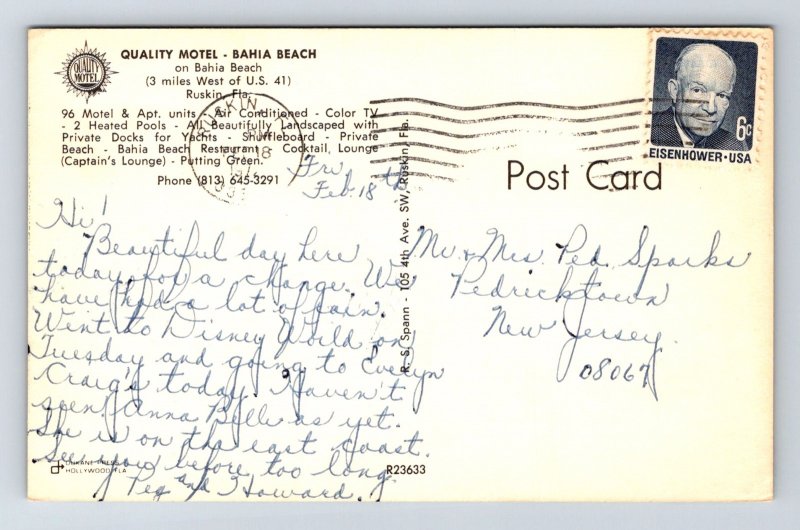 QUALITY MOTEL - BAHIA BEACH
on Bahia Beach
(3 miles West of U.S. 41)
Ruskin, Fla.
QUALITY MOTEL
96 Motel & Apt. units - Air Conditioned - Color TV
- 2 Heated Pools - All Beautifully Landscaped with
Private Docks for Yachts - Shuffleboard - Private
Beach - Bahia Beach Restaurant - Cocktail Lounge
(Captain's Lounge) - Putting Green.
Phone (813) 645-3291
RUSKIN
18
6c
EISENHOWER·USA
Post Card
Fri
Feb 18th
Hi!
Beautiful day here
today for a change. We
have had a lot of rain.
Went to Disney World on
Tuesday and going to Evelyn
Craig's today. Haven't
seen Anna Belle as yet.
She is on the east coast.
See you before too long.
Peg and Howard.
R. S. Spann - 105 4th Ave. SW, Ruskin Fla.
Mr & Mrs. Ped. Sparks
Pedricktown
New Jersey.
08067
DUKANE PRESS
HOLLYWOOD, FLA
R23633